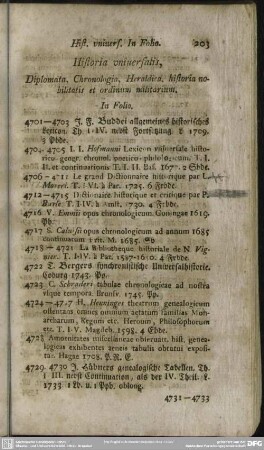 Hist. vniuers. In Folio. 203
Historia vniuersalis,
Diplomata, Chronologia, Heraldica, historia no-
bilitatis et ordinum militarium.
In Folio.
4701—4703 J. F. Buddei allgemeines historisches
Lexicon. Th. I-IV. nebst Fortsetzung. L. 1709.
3 Pbde.
4704. 4705 I. I. Hofmanni Lexicon vniuersale histo-
rico- geogr. chronol. poetico-philologicum. T. I.
II. et continuationis T. I. II. Bas. 1677. 2 Sbde.
4706-4711 Le grand Dictionnaire historique par L.
Moreri. T. I-VI. à Par. 1725. 6 Frbde.
4712—4715 Dictionnaire historique et critique par P.
Bayle. T. I-IV. à Amst. 1730. 4 Frbde.
4716 V. Emmii opus chronologicum. Groningae 1619.
Pb.
4717 S. Caluisii opus chronologicum ad annum 1685
continuatum. Frf. M. 1685. Pb
4718—4721 La Bibliotheque historiale de N. Vig-
nier. T. I-IV. à Par. 1587-1610. 4 Frbde.
4722 T. Bergers synchronistische Universalhistorie.
Coburg 1743. Pp.
4723 C. Schraders tabulae chronologicae ad nostra
vsque tempora. Brunsv. 1745. Pp.
4724—4727 H. Henninges theatrum genealogicum
ostentans omnes omnium aetatum familias Mo-
narcharum, Regum etc. Heroum, Philosophorum
etc. T. I-V. Magdeb. 1598. 4 Ebde.
4728 Amoenitates miscellaneae obseruat. hist. genea-
logicis exhibentes aeneis tabulis obratui exposi-
tur. Hagae 1708. P. R. E.
4729. 4730 J. Hübners genealogische Tabellen. Th.
I-III. nebst Continuation, als der IV. Theil. L.
1733. 1 Ld. u. 1 Pph. oblong.
4731—4733